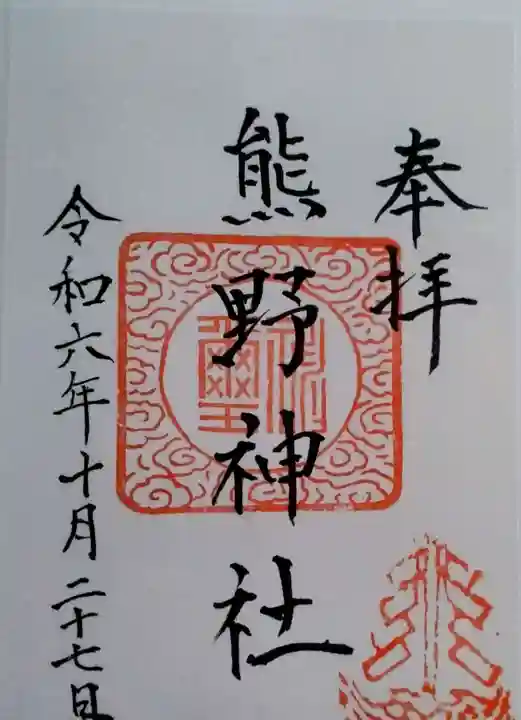 奉拝
熊野神社
令和六年十月二十七日